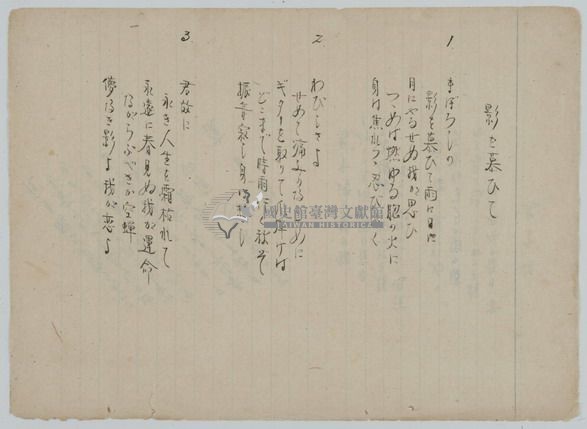 影を慕ひて
1.
まぼろしの
影を慕ひて雨に日に
月にやるせぬ我が思ひ
つゝめば燃ゆる胸の火に
身は焦れつゝ忍び く
2.
わびしさよ
せめて痛みの なぐさめに
ギターを取りて 爪弾けば
どこまで時雨 秋ぞ
振音 寂し身 し
3.
君故に
永き人生を霜枯れて
永遠に春見ぬ我が運命
ながらふべきか空蝉
儚なき影よ我が恋よ
國史館臺灣文獻館
TAIWAN HISTORICA